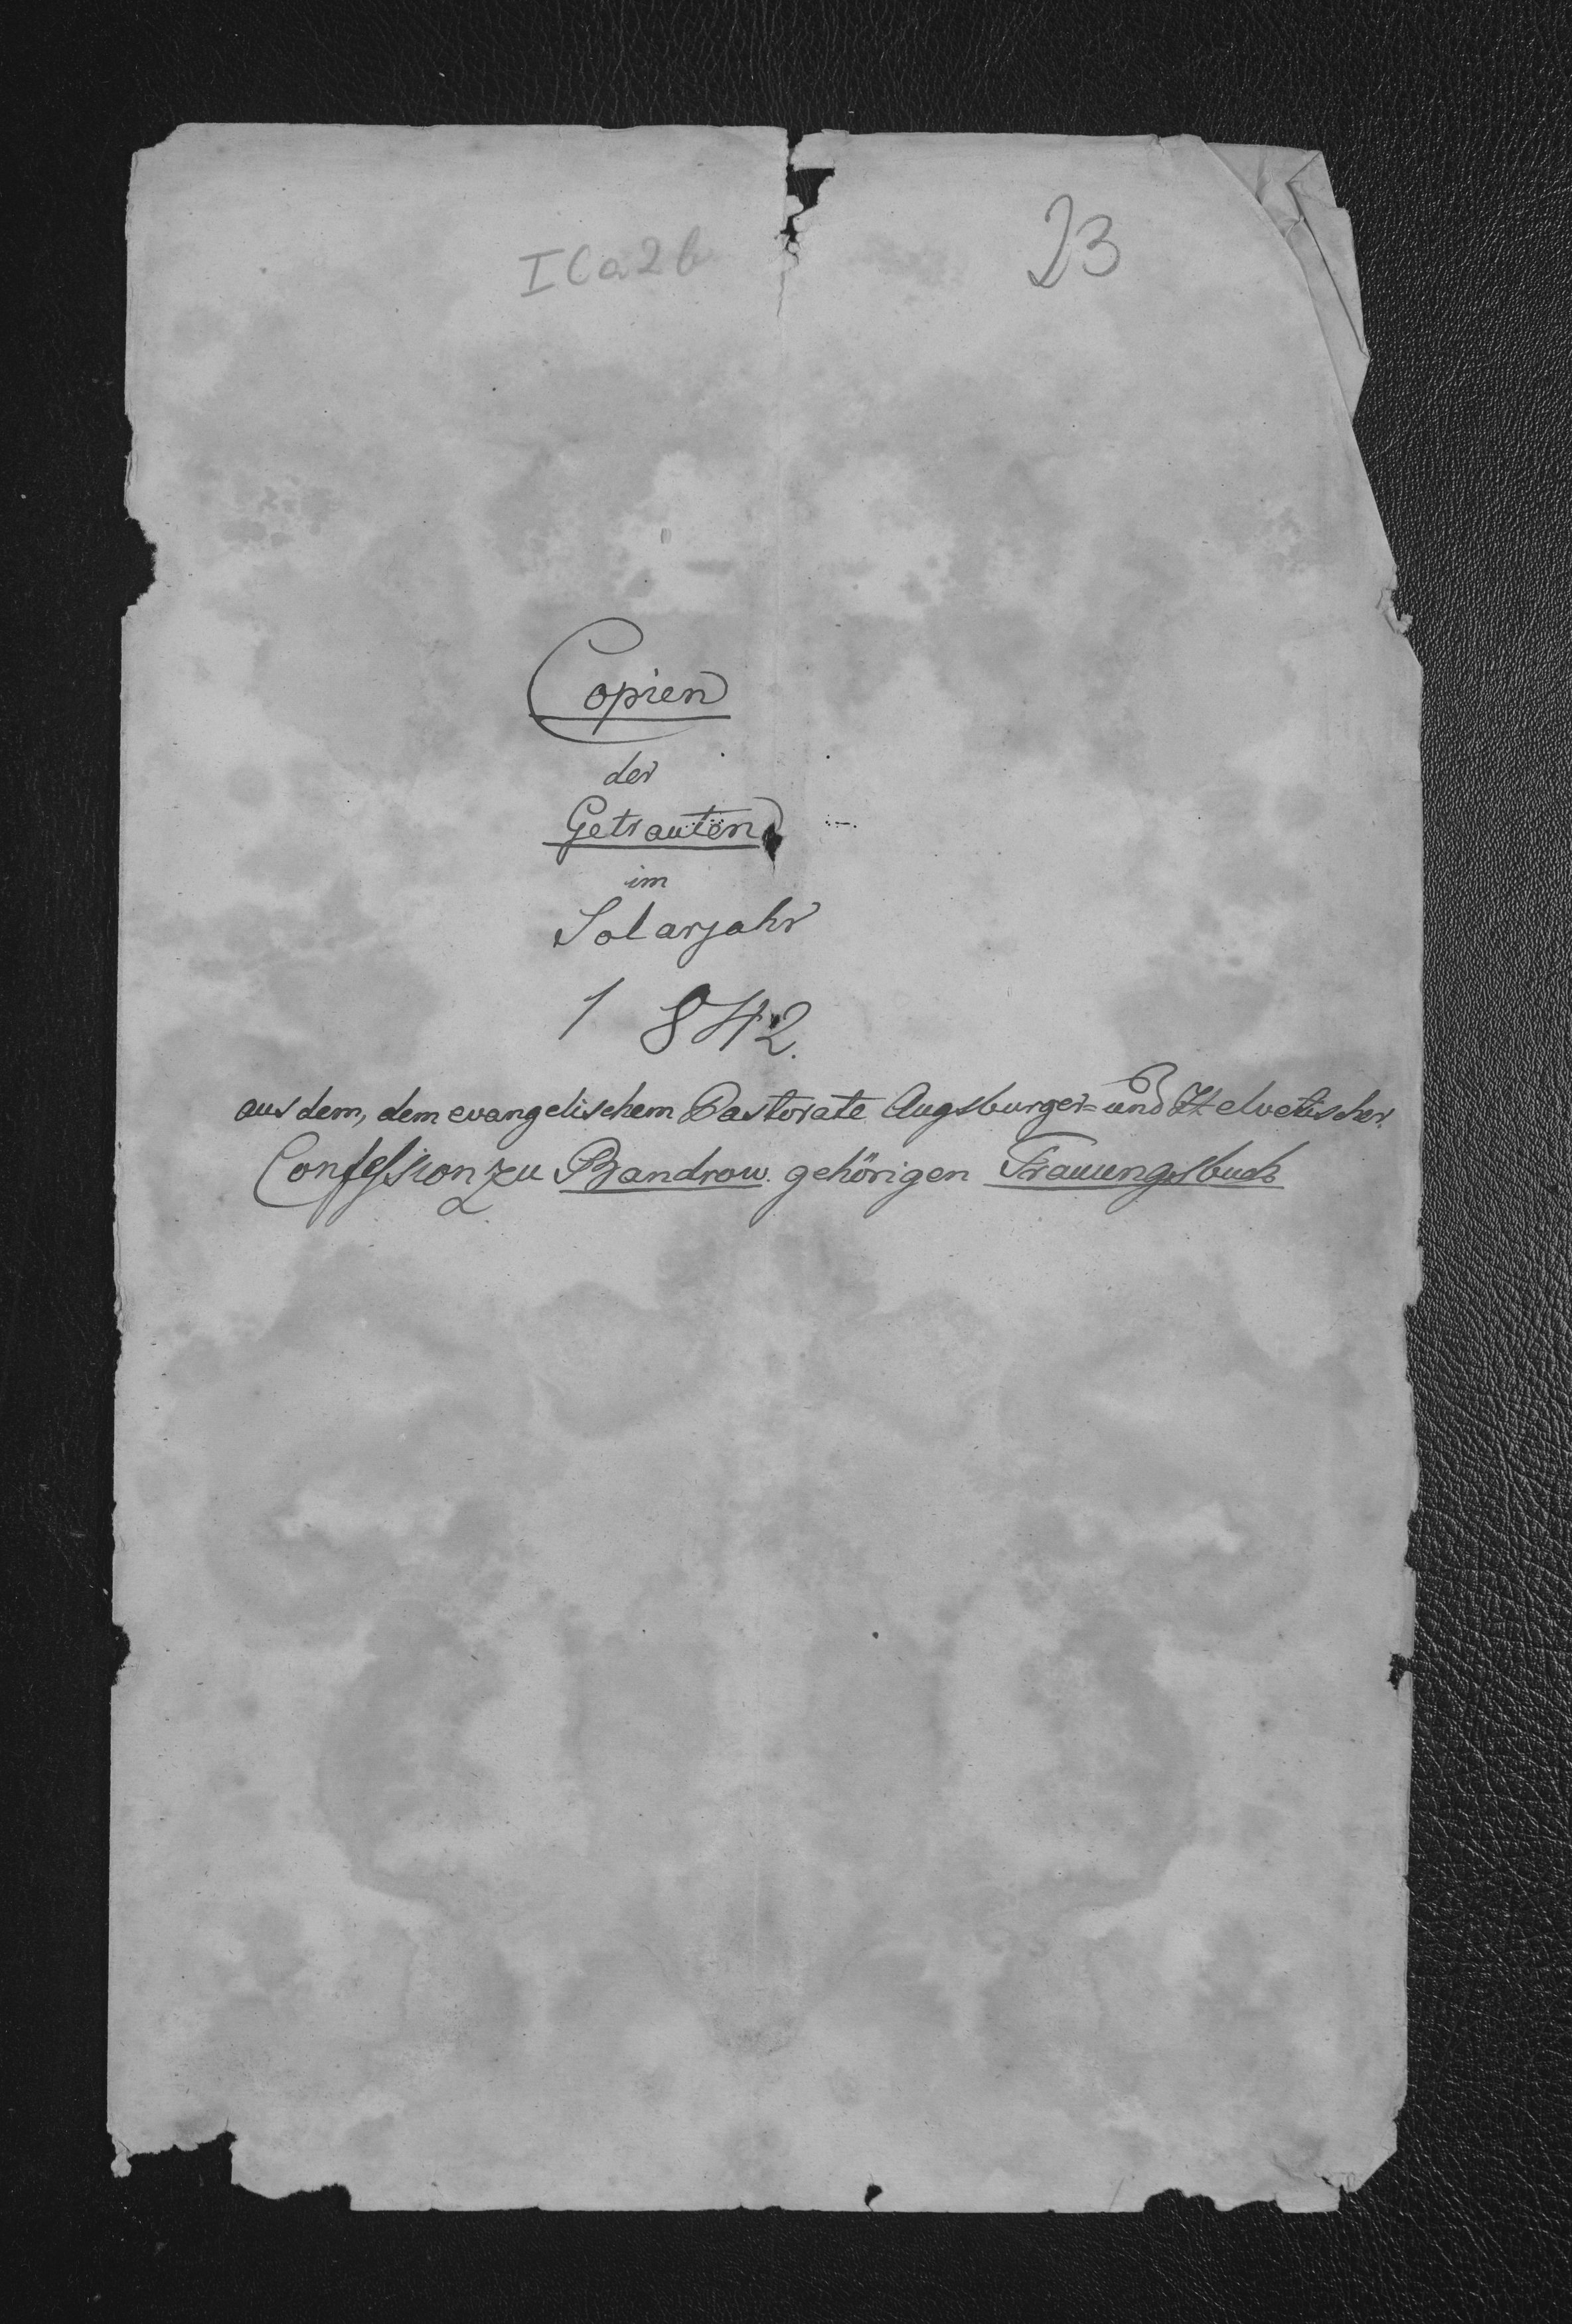 ICa2b
23
Copien
der
Getrauten
im
Solarjahr
1842.
aus dem, dem evangelischem Pastorate Augsburger= und Helvetischer
Confession zu Bandrow gehörigen Trauungsbuch